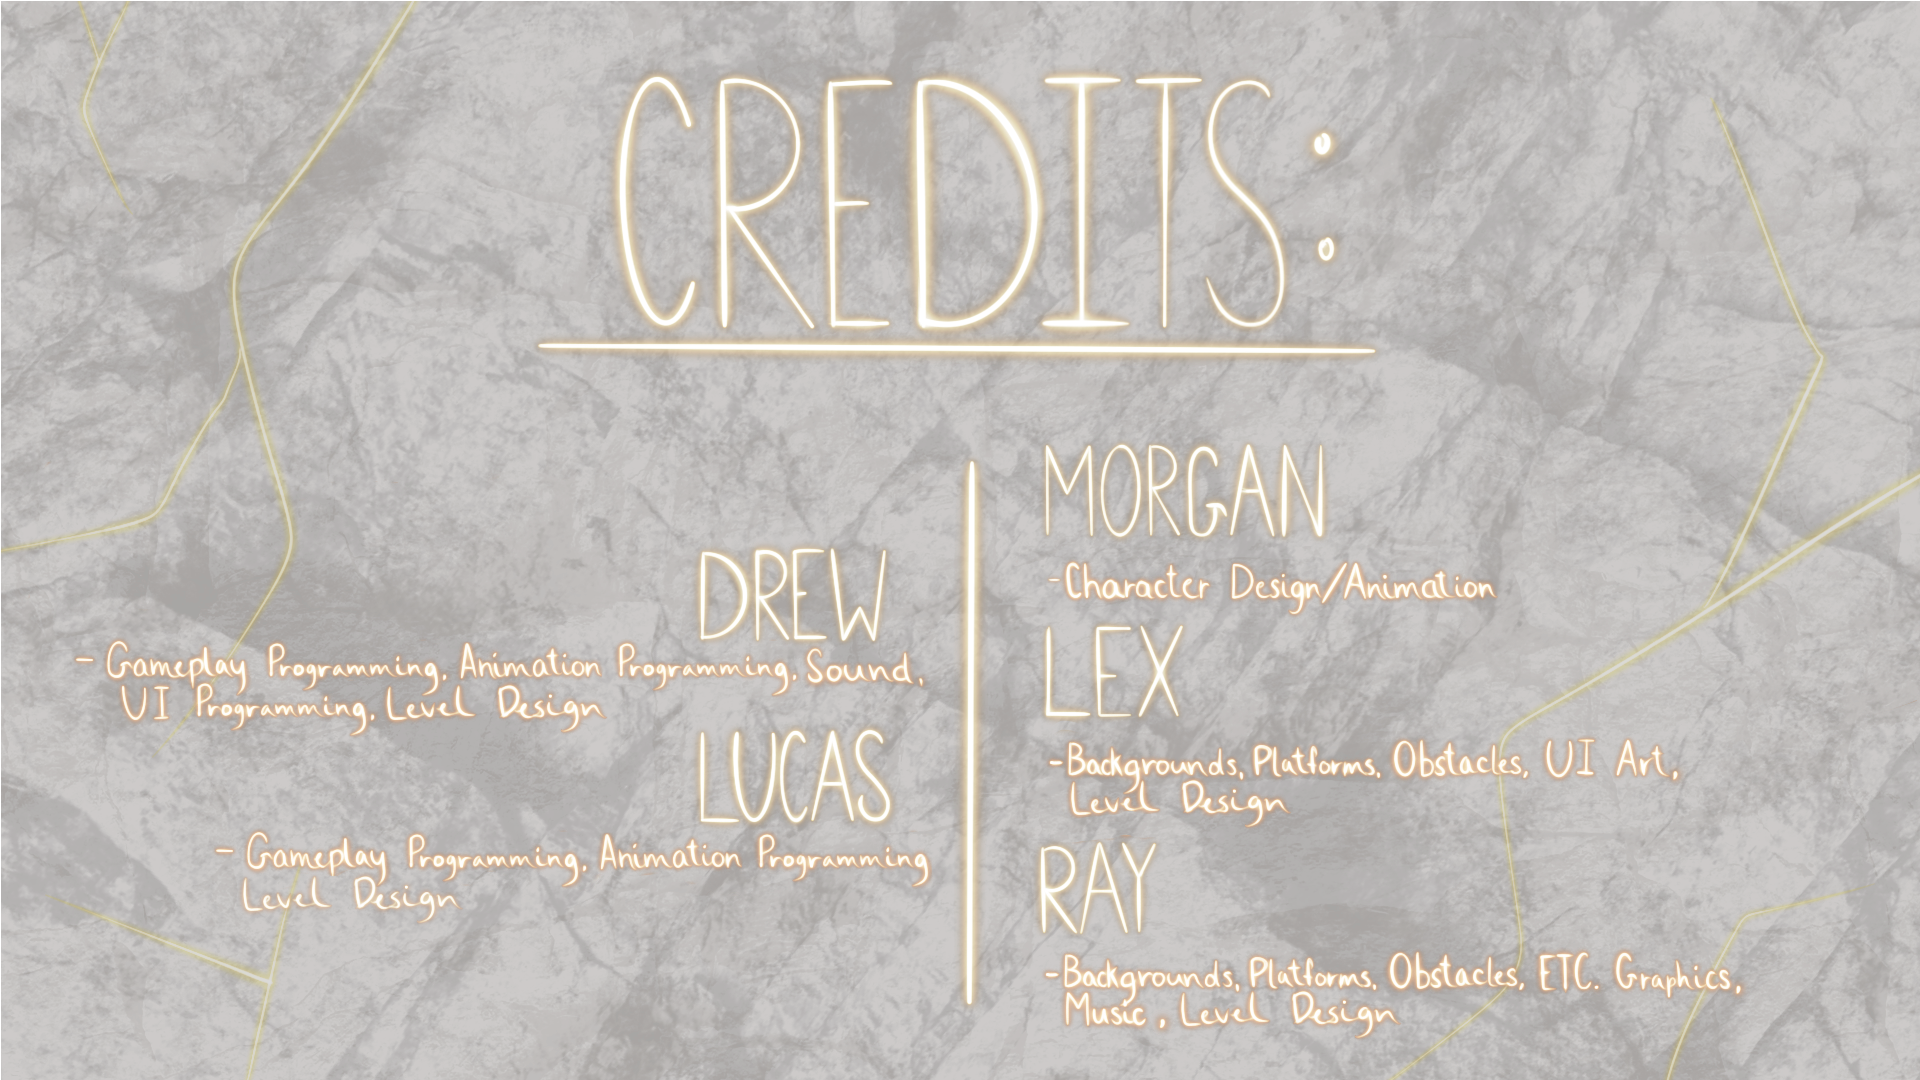 CREDITS:
DREW
- Gameplay Programming, Animation Programming, Sound,
UI Programming, Level Design
LUCAS
- Gameplay Programming, Animation Programming
Level Design
MORGAN
-Character Design/Animation
LEX
-Backgrounds, Platforms, Obstacles, UI Art,
Level Design
RAY
-Backgrounds, Platforms, Obstacles, ETC. Graphics,
Music, Level Design